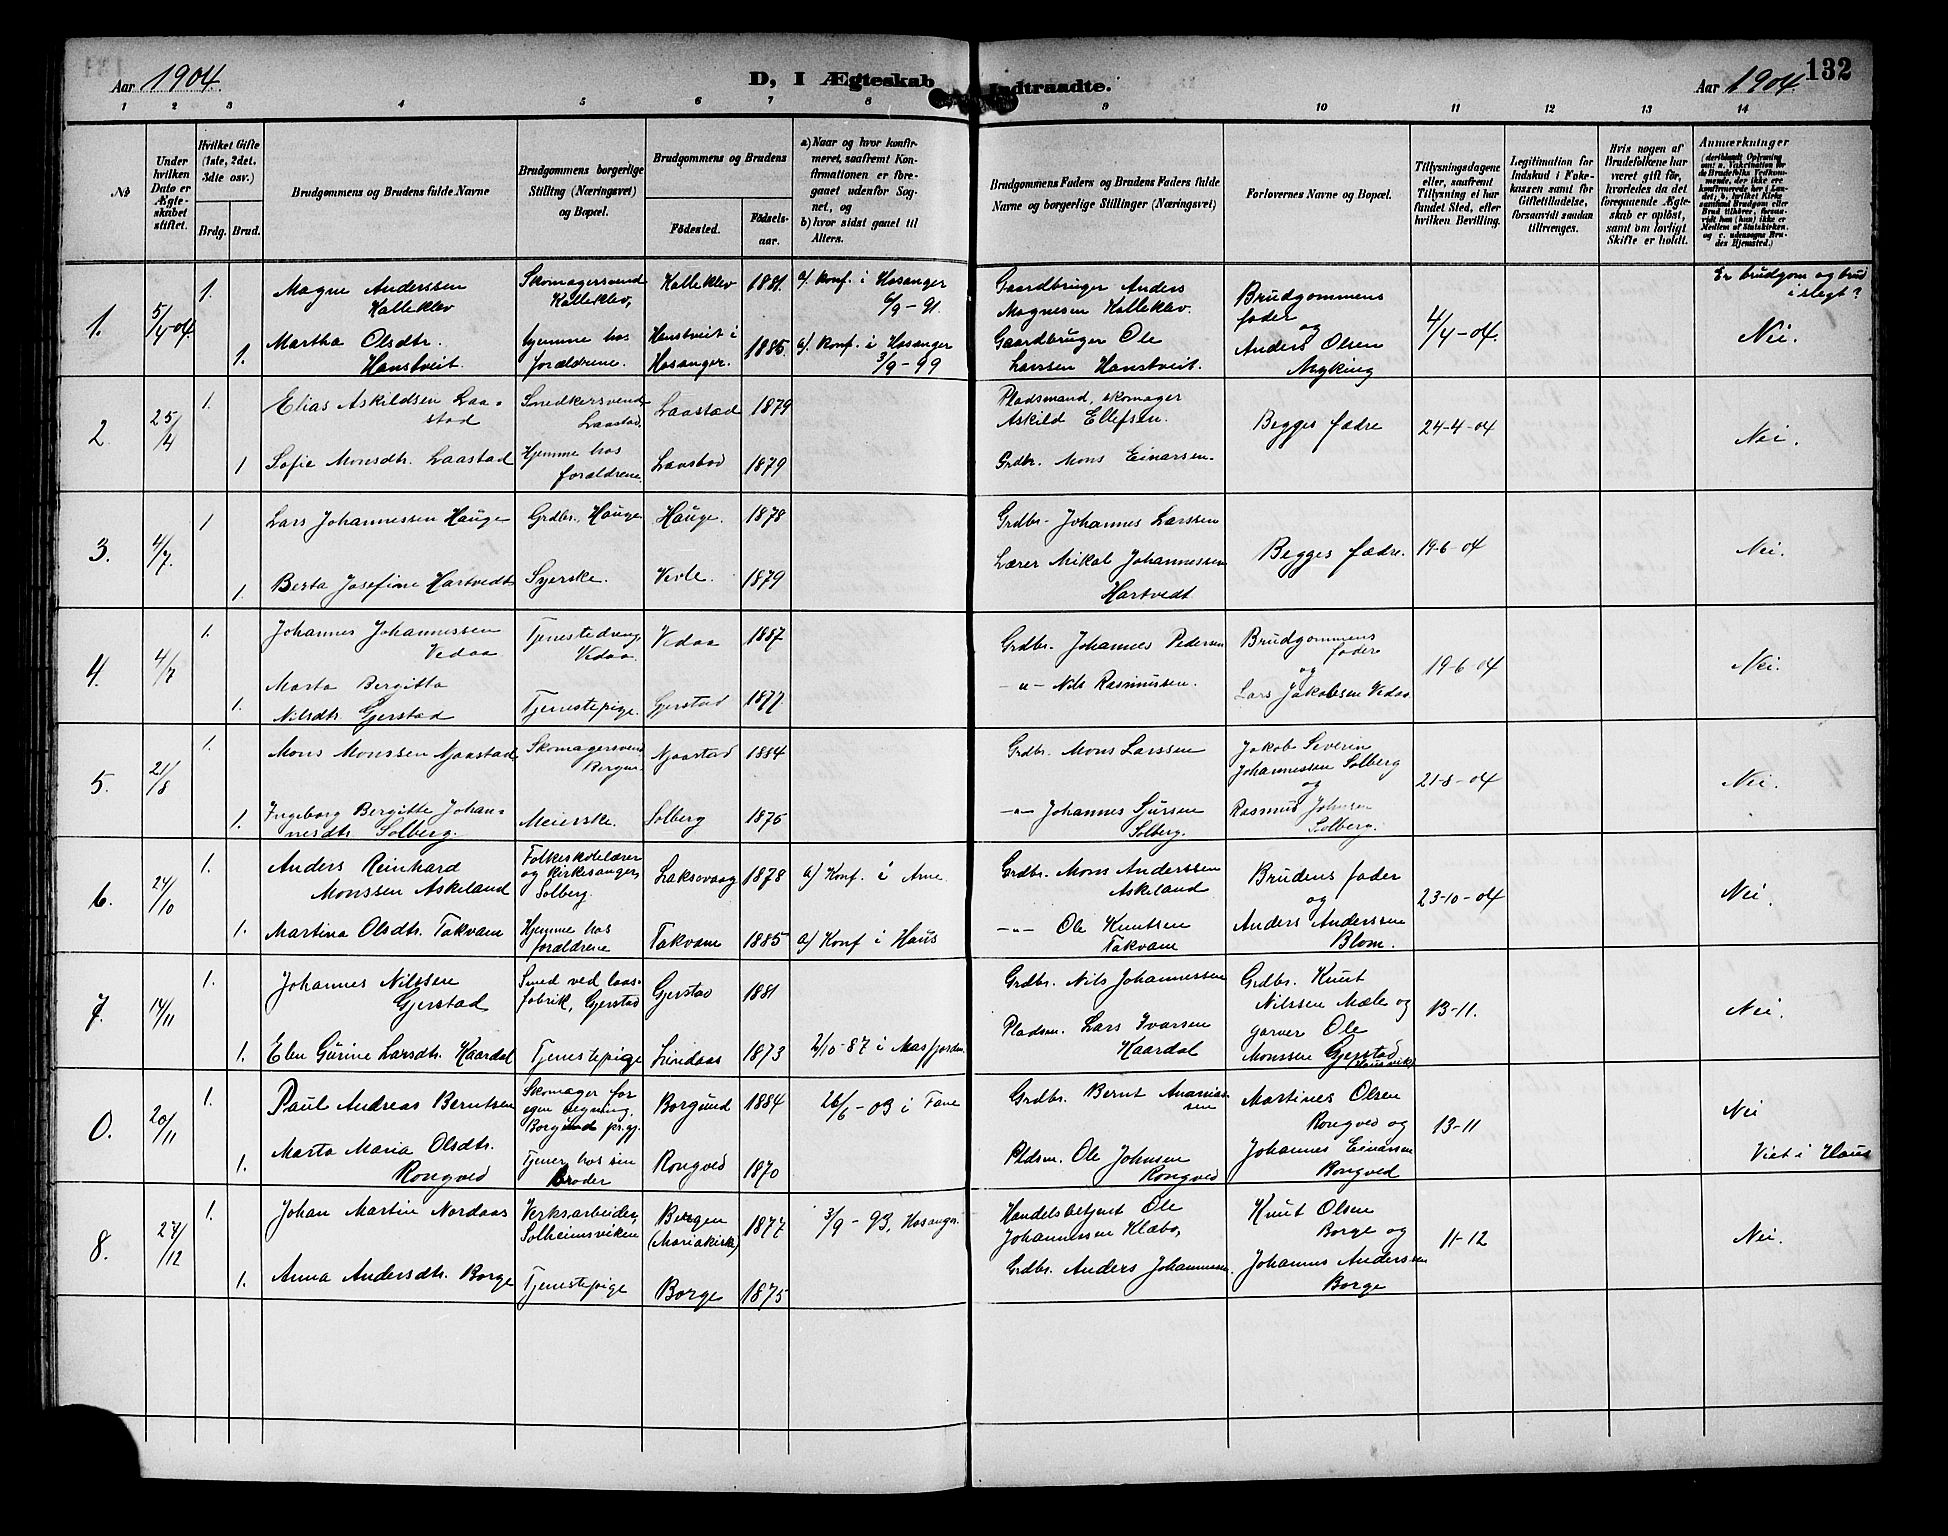 Aar 1904.
D, I Ægteskab Indtraadte.
Aar 1904.
132
1 2 3 4 5 6 7 8 9 10 11 12 13 14
No
Under hvilken Dato er Ægteskabet stiftet.
Hvilket Gifte (1ste, 2det, 3die osv.)
Brdg. Brud.
Brudgommens og Brudens fulde Navne
Brudgommens borgerlige Stilling (Næringsvei) og Bopæl.
Brudgommens og Brudens
Födested.
Födselsaar.
a) Naar og hvor konfirmeret, saafremt Konfirmationen er foregaaet udenfor Sognet, og
b) hvor sidst gaaet til Alters.
Brudgommens Faders og Brudens Faders fulde Navne og borgerlige Stillinger (Næringsvei)
Forlovernes Navne og Bopæl.
Tillysningsdagene eller, saafremt Tillysning ei har fundet Sted, efter hvilken Bevilling.
Legitimation for Indskud i Fokekassen samt for Giftetilladelse, forsaavidt saadan tiltrænges.
Hvis nogen af Brudefolkene har været gift før, hvorledes da det foregaaende Ægteskab er opløst, samt om lovligt Skifte er holdt.
Anmærkninger
Er brudgom og brud i slegt?
1. 5/4-04. 1. Magne Anderssen Kalleklev Skomagersvend Kalleklev, Kalleklev 1881. a). Konf. i Hosanger 6/9-91. Gaardbruger Anders Magnesen Kalleklev. Brudgommens fader og Anders Olsen Myking 4/4-04. Nei.
1. Martha Olsdtr. Hanstveit. hjemme hos forældrene. Hanstveit i Hosanger. 1885 a). Konf. i Hosanger 3/9-99 Gaardbruger Ole Larssen Hanstveit.
2. 25/4 1. Elias Askildsen Laastad Snedkersvend, Laastad. Laastad 1879 Pladsmand, skomager Askild Ellefsen. Begges fædre 24-4-04 Nei.
1 Sofie Monsdtr. Laastad Hjemme hos forældrene. Laastad 1879 Grdbr. Mons Einarsen.
3. 4/7. 1 Lars Johannessen Hauge Grdbr., Hauge. Hauge. 1878 Grdbr. Johannes Larssen Begges fædre. 19-6-04 Nei.
1. Berta Josefine Hartvedt Syerske. Vevle. 1879 Lærer Mikal Johannessen Hartvedt
4. 4/7 1. Johannes Johannessen Vedaa Tjenestedreng, Vedaa. Vedaa 1887 Grdbr. Johannes Pedersen Brudgommens fader og Lars Jakobsen Vedaa 19-6-04 Nei.
1. Marta Bergitta Nilsdtr. Gjerstad Tjenestepige. Gjerstad 1877 -"- Nils Rasmussen.
5. 21/8 1. Mons Monssen Njaastad Skomagersvend Bergen. Njaastad 1884 Grdbr. Mons Larssen Jakob Severin Johannessen Solberg og Rasmus Johnsen Solberg. 21-8-04 Nei.
1. Ingeborg Bergitte Johannesdtr. Solberg. Meierske. Solberg 1876 -"- Johannes Sjursen Solberg.
6. 24/10 1. Anders Reinhard Monssen Askeland Folkeskolelærer og kirkesanger, Solberg. Laksevaag 1878 a) Konf. i Arne Grdbr. Mons Anderssen Askeland Brudens fader og Anders Anderssen Blom. 23-10-04 Nei.
1. Martina Olsdtr. Takvam Hjemme hos forældrene Takvam 1885 a) Konf i Haus -"- Ole Knutsen Takvam
7. 14/11 1. Johannes Nilssen Gjerstad Smed ved laasfabrik, Gjerstad Gjerstad 1881 Grdbr. Nils Johannessen Grdbr. Knut Nilssen Mæle og garver Ole Monssen Gjerstad 13-11. Nei.
1. Elen Gurine Larsdtr. Kaardal Tjenestepige Lindaas 1873 2/10-87 i Masfjorden Pladsm. Lars Ivarsen Kaardal
0. 20/11 1. Paul Andreas Berntsen Skomager for egen regning. Borgund prgj. Borgund 1884 26/6-03 i Fane Grdbr. Bernt Ananiassen Martines Olsen Rongved og Johannes Einarssen Rongved 13-11 Nei
1. Marta Maria Olsdtr. Rongved Tjener hos sin Broder Rongved 1870 Pldsm. Ole Johnsen Rongved Viet i Haus
8. 27/12 1. Johan Martin Nordaas Verksarbeider, Solheimsviken Bergen (Mariakirk) 1877 3/9-93. Hosanger. Handelsbetjent Ole Johannessen Klæbo, Knut Olsen Borge og Johannes Anderssen Borge 11-12 Nei.
1. Anna Andersdtr. Borge Tjenestepige Borge 1875 Grdbr. Anders Johannessen.